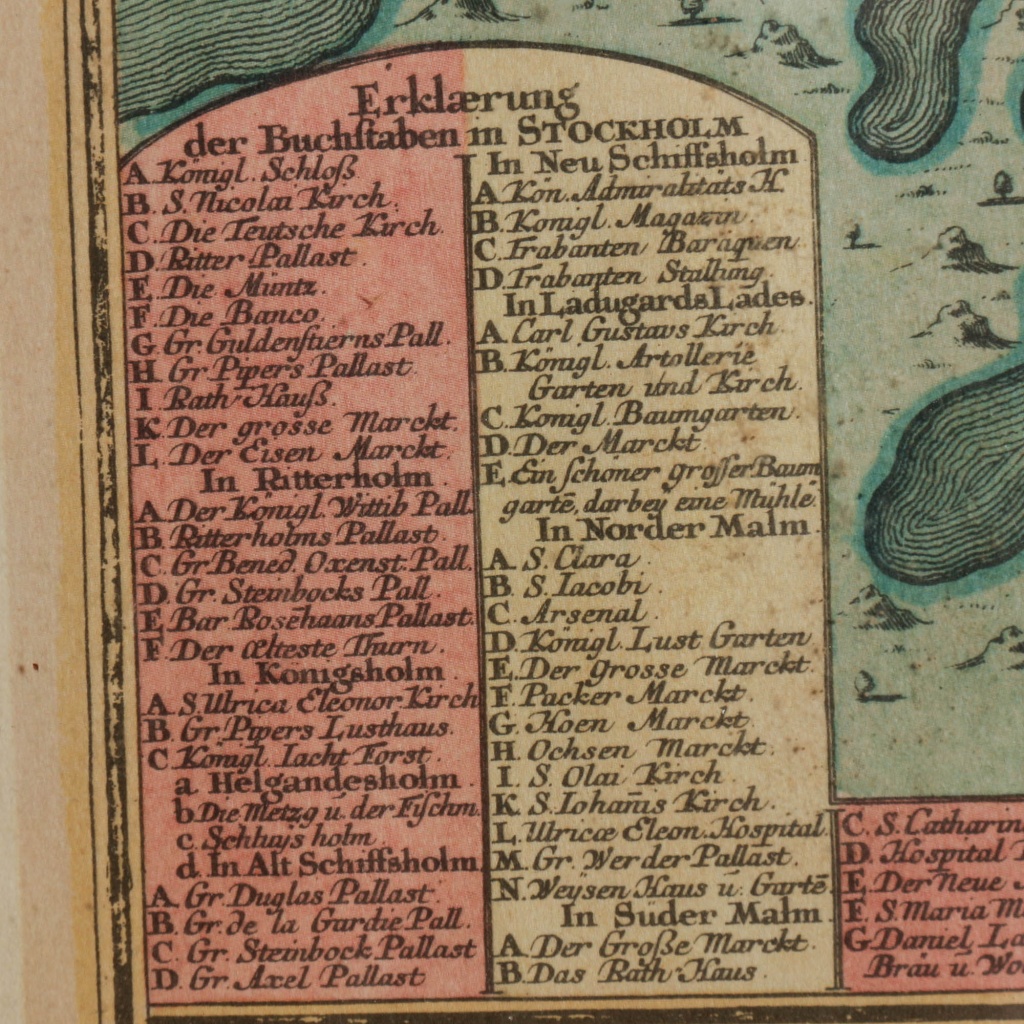 Erklærung
der Buchstaben in STOCKHOLM
A. Königl. Schloß
B. S. Nicolai Kirch.
C. Die Teutsche Kirch.
D. Ritter Pallast.
E. Die Müntz.
F. Die Banco.
G. Gr. Guldenstierns Pall.
H. Gr. Pipers Pallast.
I. Rath Hauß.
K. Der grosse Marckt.
L. Der Eisen Marckt.
In Ritterholm.
A. Der Königl. Wittib Pall.
B. Ritterholms Pallast.
C. Gr. Bened. Oxenst. Pall.
D. Gr. Steinbocks Pall.
E. Bar. Rosēhaans Pallast.
F. Der ælteste Thurn.
In Königsholm.
A. S. Ulrica Eleonor Kirch
B. Gr. Pipers Lusthaus.
C. Königl. Iacht Forst.
a Helgandesholm.
b. Die Metzg u. der Fischm.
c. Schhujs holm.
d. In Alt Schiffsholm
A. Gr. Duglas Pallast.
B. Gr. de la Gardie Pall.
C. Gr. Steinbock Pallast
D. Gr. Axel Pallast
In Neu Schiffsholm
A. Kön. Admiralitäts H.
B. Königl. Magazin.
C. Trabanten Baraquen.
D. Trabanten Stallung.
In Ladugards Lades.
A. Carl Gustavs Kirch.
B. Königl. Artollerie
Garten und Kirch.
C. Königl. Baumgarten.
D. Der Marckt.
E. Ein schöner grosser Baum
gartē, darbey eine Mühle.
In Norder Malm.
A. S. Clara.
B. S. Iacobi.
C. Arsenal.
D. Königl. Lust Garten
E. Der grosse Marckt.
F. Packer Marckt.
G. Hoen Marckt.
H. Ochsen Marckt.
I. S. Olai Kirch
K. S. Iohan̄is Kirch.
L. Ulricæ Eleon. Hospital.
M. Gr. Werder Pallast.
N. Weysen Haus u. Gartē.
In Süder Malm.
A. Der Große Marckt.
B. Das Rath Haus.
C. S. Catharin
D. Hospital
E. Der Neue
F. S. Maria M
G. Daniel
Bräu u.